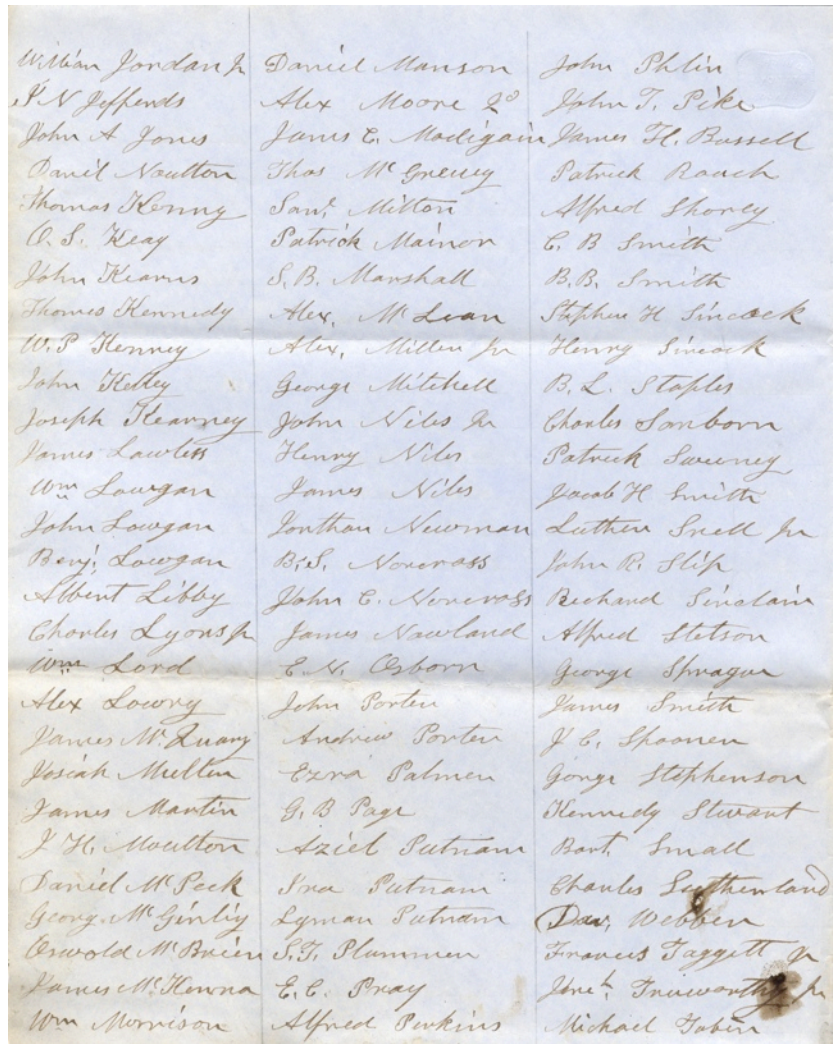 William Jordan Jr
J N Jeffends
John A Jones
Daniel Noulton
Thomas Kenny
O. S. Keay
John Kearns
Thomes Kennedy
W. P Kenney
John Kelley
Joseph Kearney
James Lawless
Wm Lowgan
John Lowgan
Benj. Lowgan
Albert Libby
Charles Lyons Jr
Wm Lord
Alex Lowry
James Mc Quary
Josiah Mullen
James Martin
J H. Moulton
Daniel McPeck
Georg McGinliy
Oswold McBrien
James McKenna
Wm Morrison
Daniel Manson
Alex Moore 2d
James C. Madigain
Thos Mc Grevey
Saml. Milton
Patrick Mainor
S. B. Marshall
Alex, Mc Lean
Alex, Miller Jr
George Mitchell
John Niles Jr
Henry Niles
James Niles
Jonthan Newman
B. S. Norcross
John C. Norcross
James Nowland
E. N. Osborn
John Porter
Andrew Porter
Ezra Palmer
G. B Page
Aziel Putnam
Ira Putnam
Lyman Putnam
S. T. Plummer
E. C. Pray
Alfred Perkins
John Phlin
John T. Pike
James H. Bussell
Patrick Roach
Alfred Shorey
C. B Smith
B. B. Smith
Stephen H Sincock
Henry Sincock
B. L. Staples
Charles Sanborn
Patrick Sweeney
Jacob H Smith
Luther Snell Jr
John R. Slip
Richard Sinclain
Alfred Stetson
George Sprague
James Smith
J C. Spooner
Gorge Stephenson
Kennedy Stuart
Bart. Small
Charles Sutherland
Dav. Webber
Francis Taggett Jr
Jere h. Trueworthy Jr
Michael Tobin